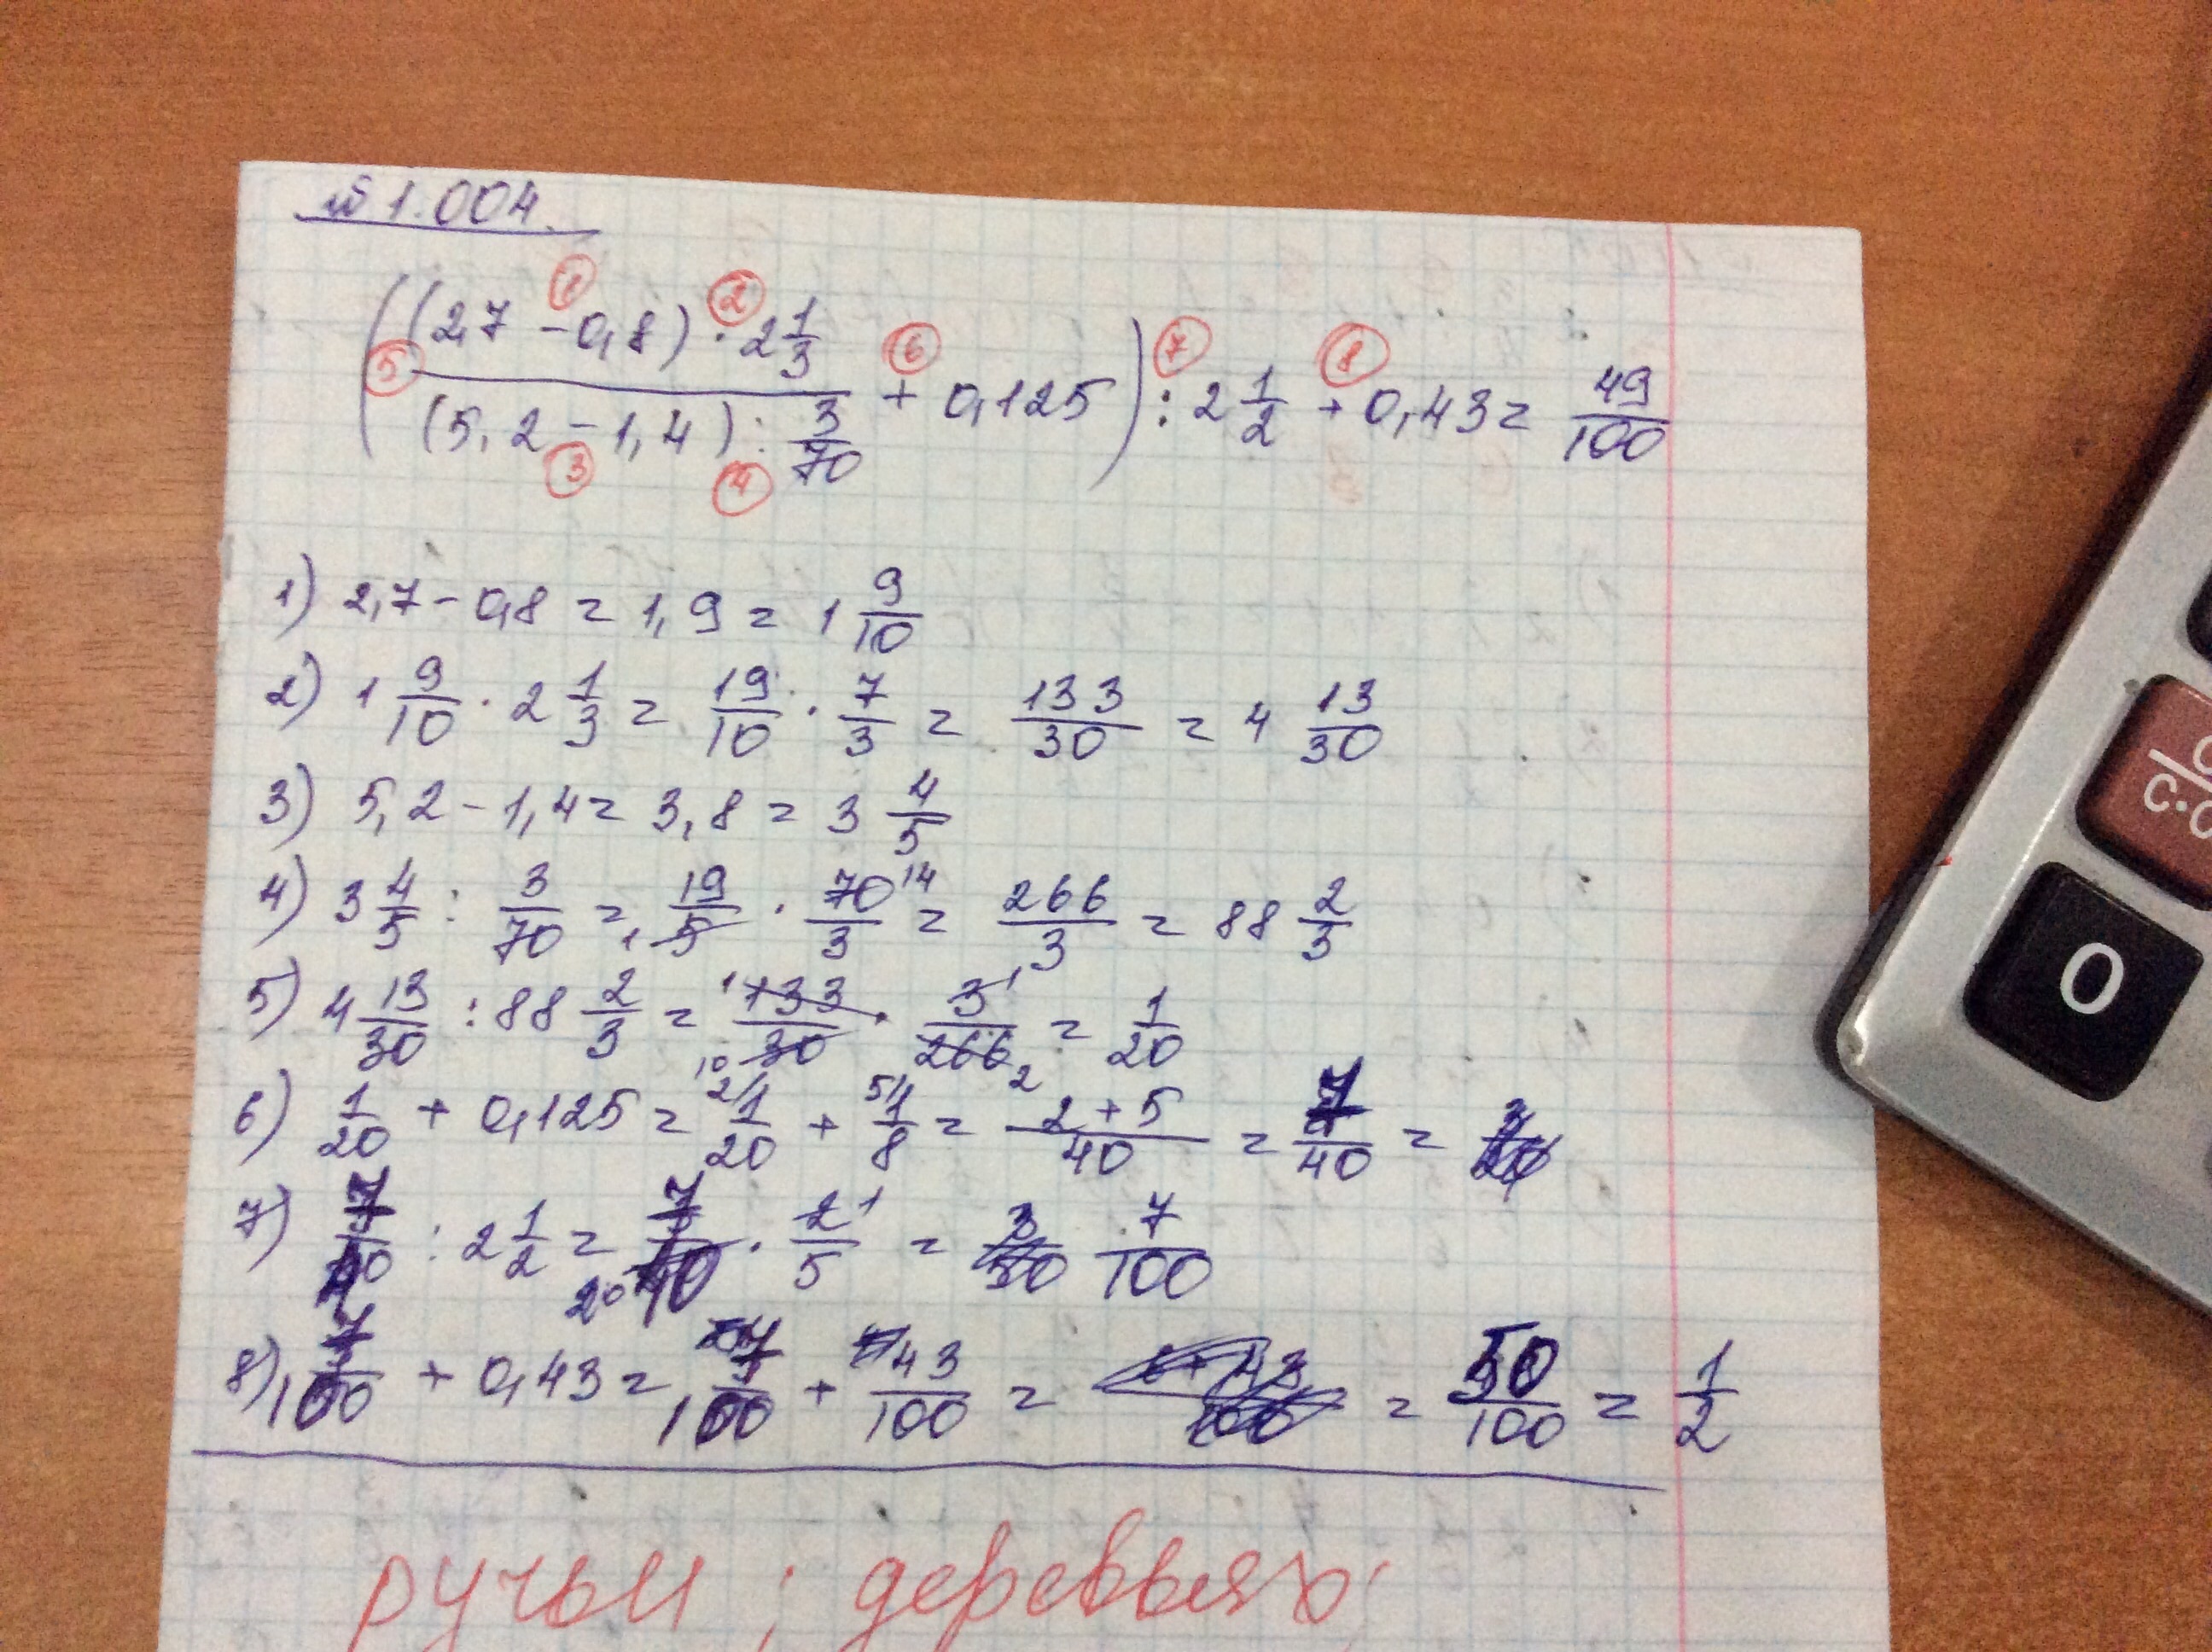 № 1.004.
((2,7 - 0,8) · 2 1/3 / (5,2 - 1,4) : 3/70 + 0,125) : 2 1/2 + 0,43 = 49/100
1 2 3 4 5 6 7 8
1) 2,7 - 0,8 = 1,9 = 1 9/10
2) 1 9/10 · 2 1/3 = 19/10 · 7/3 = 133/30 = 4 13/30
3) 5,2 - 1,4 = 3,8 = 3 4/5
4) 3 4/5 : 3/70 = 19/5 · 70/3 = 266/3 = 88 2/3
5) 4 13/30 : 88 2/3 = 133/30 · 3/266 = 1/20
6) 1/20 + 0,125 = 1/20 + 1/8 = 2+5/40 = 7/40 =
7) 7/40 : 2 1/2 = 7/40 · 2/5 = 7/100
8) 7/100 + 0,43 = 7/100 + 43/100 = = 50/100 = 1/2
ручьи ; деревьях ;
0